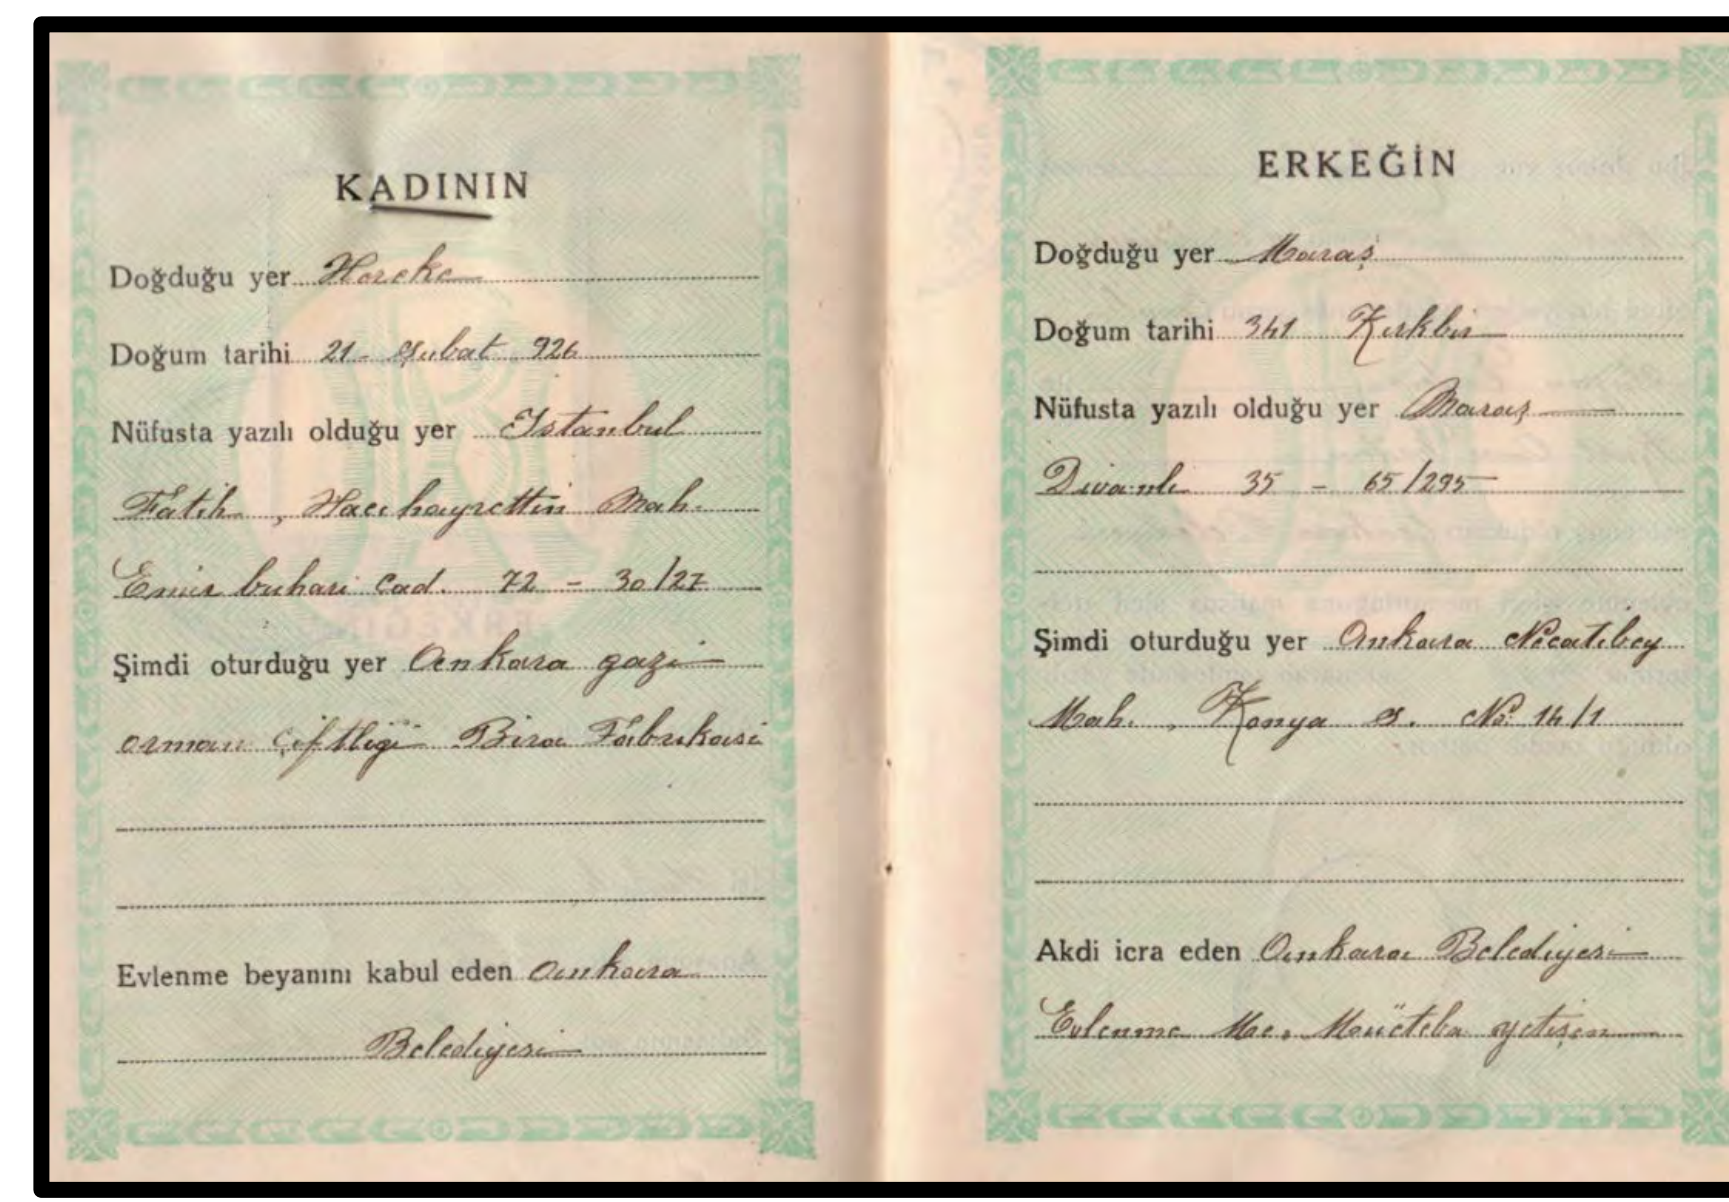 KADININ
Doğduğu yer Hereke
Doğum tarihi 21 - Şubat 926
Nüfusta yazılı olduğu yer İstanbul
Fatih, Hacı hayrettin Mah.
Emir buhari Cad. 72 - 30/27
Şimdi oturduğu yer Ankara gazi
orman çiftliği Bira Fabrikası
Evlenme beyanını kabul eden Ankara
Belediyesi
ERKEĞİN
Doğduğu yer Maraş
Doğum tarihi 341 Kırkbir
Nüfusta yazılı olduğu yer Maraş
Divanlı 35 - 65/295
Şimdi oturduğu yer Ankara Necatibey
Mah., Konya S. No: 14/1
Akdi icra eden Ankara Belediyesi
Evlenme Me. Mücteba yetişen